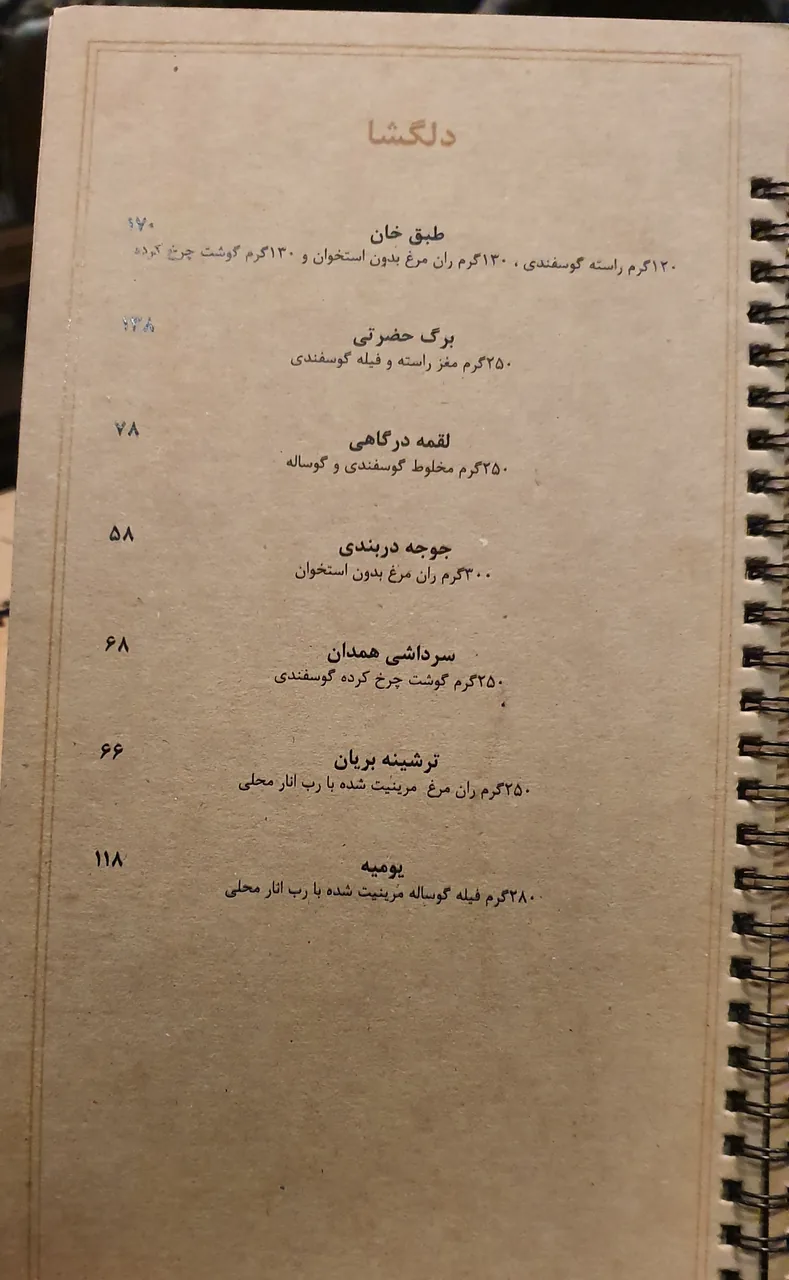 دلگشا
طبق خان
۱۷۰
۱۲۰گرم راسته گوسفندی ، ۱۳۰گرم ران مرغ بدون استخوان و ۱۳۰گرم گوشت چرخ کرده
برگ حضرتی
۱۳۸
۲۵۰گرم مغز راسته و فیله گوسفندی
لقمه درگاهی
۷۸
۲۵۰گرم مخلوط گوسفندی و گوساله
جوجه دربندی
۵۸
۳۰۰گرم ران مرغ بدون استخوان
سرداشی همدان
۶۸
۲۵۰گرم گوشت چرخ کرده گوسفندی
ترشینه بریان
۶۶
۲۵۰گرم ران مرغ مرینیت شده با رب انار محلی
یومیه
۱۱۸
۲۸۰گرم فیله گوساله مرینیت شده با رب انار محلی